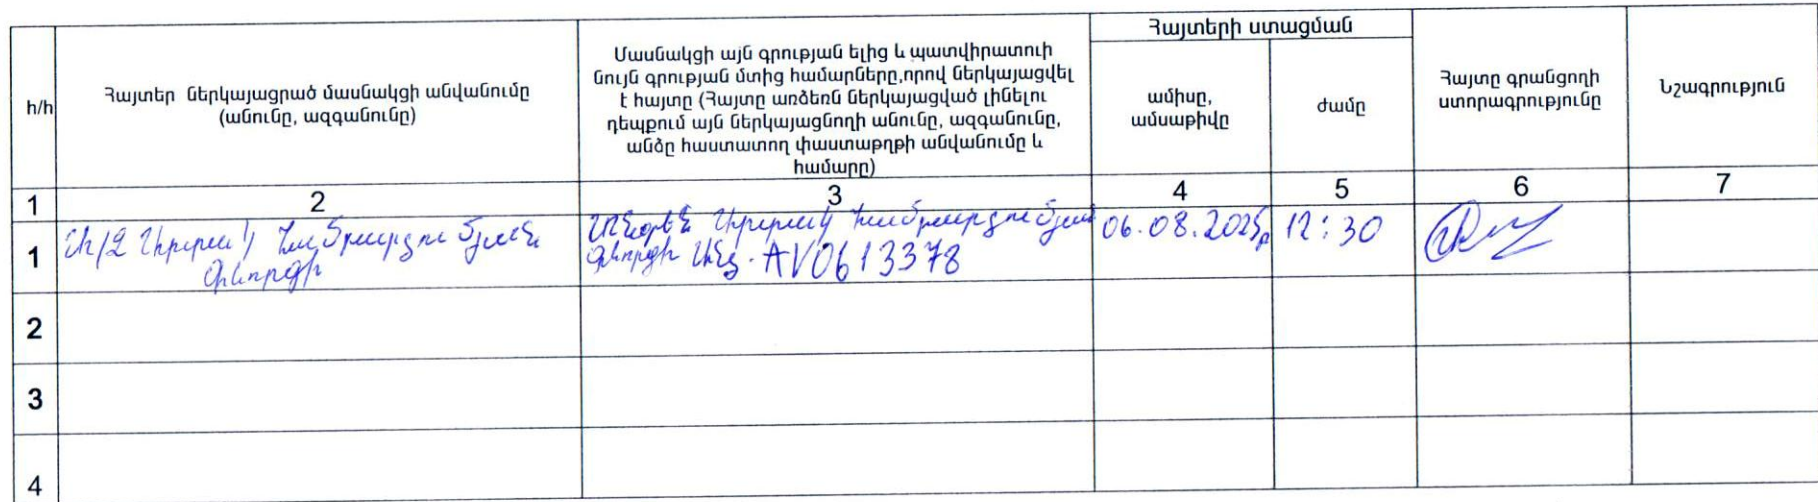 Հայտերի ստացման
h/h
Հայտեր ներկայացրած մասնակցի անվանումը
(անունը, ազգանունը)
Մասնակցի այն գրության ելից և պատվիրատուի
նույն գրության մտից համարները,որով ներկայացվել
է հայտը (Հայտը առձեռն ներկայացված լինելու
դեպքում այն ներկայացնողի անունը, ազգանունը,
անձը հաստատող փաստաթղթի անվանումը և
համարը)
ամիսը,
ամսաթիվը
ժամը
Հայտը գրանցողի
ստորագրությունը
Նշագրություն
1 2 3 4 5 6 7
1 Ա/Ձ Համբարձումյան
Գևորգի
Համբարձումյան
Գևորգի AV0613378
06.08.2025թ 12:30
2
3
4